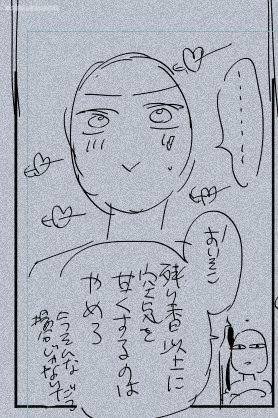 おいそこ
残り香以上に
空気を
甘くするのは
やめろ
今そんな
場合じゃないだろ